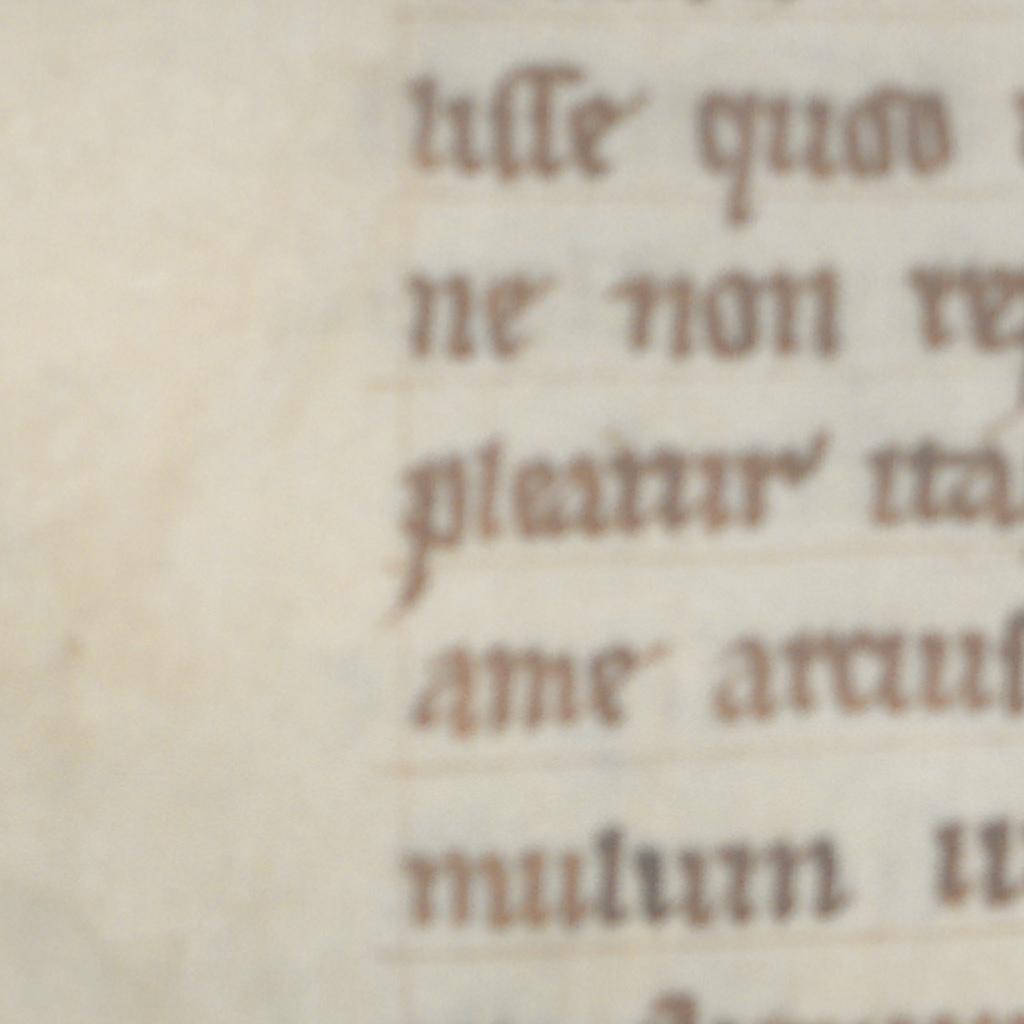 uisse quod
ne non re
pleatur ita
ame arcius
mulum